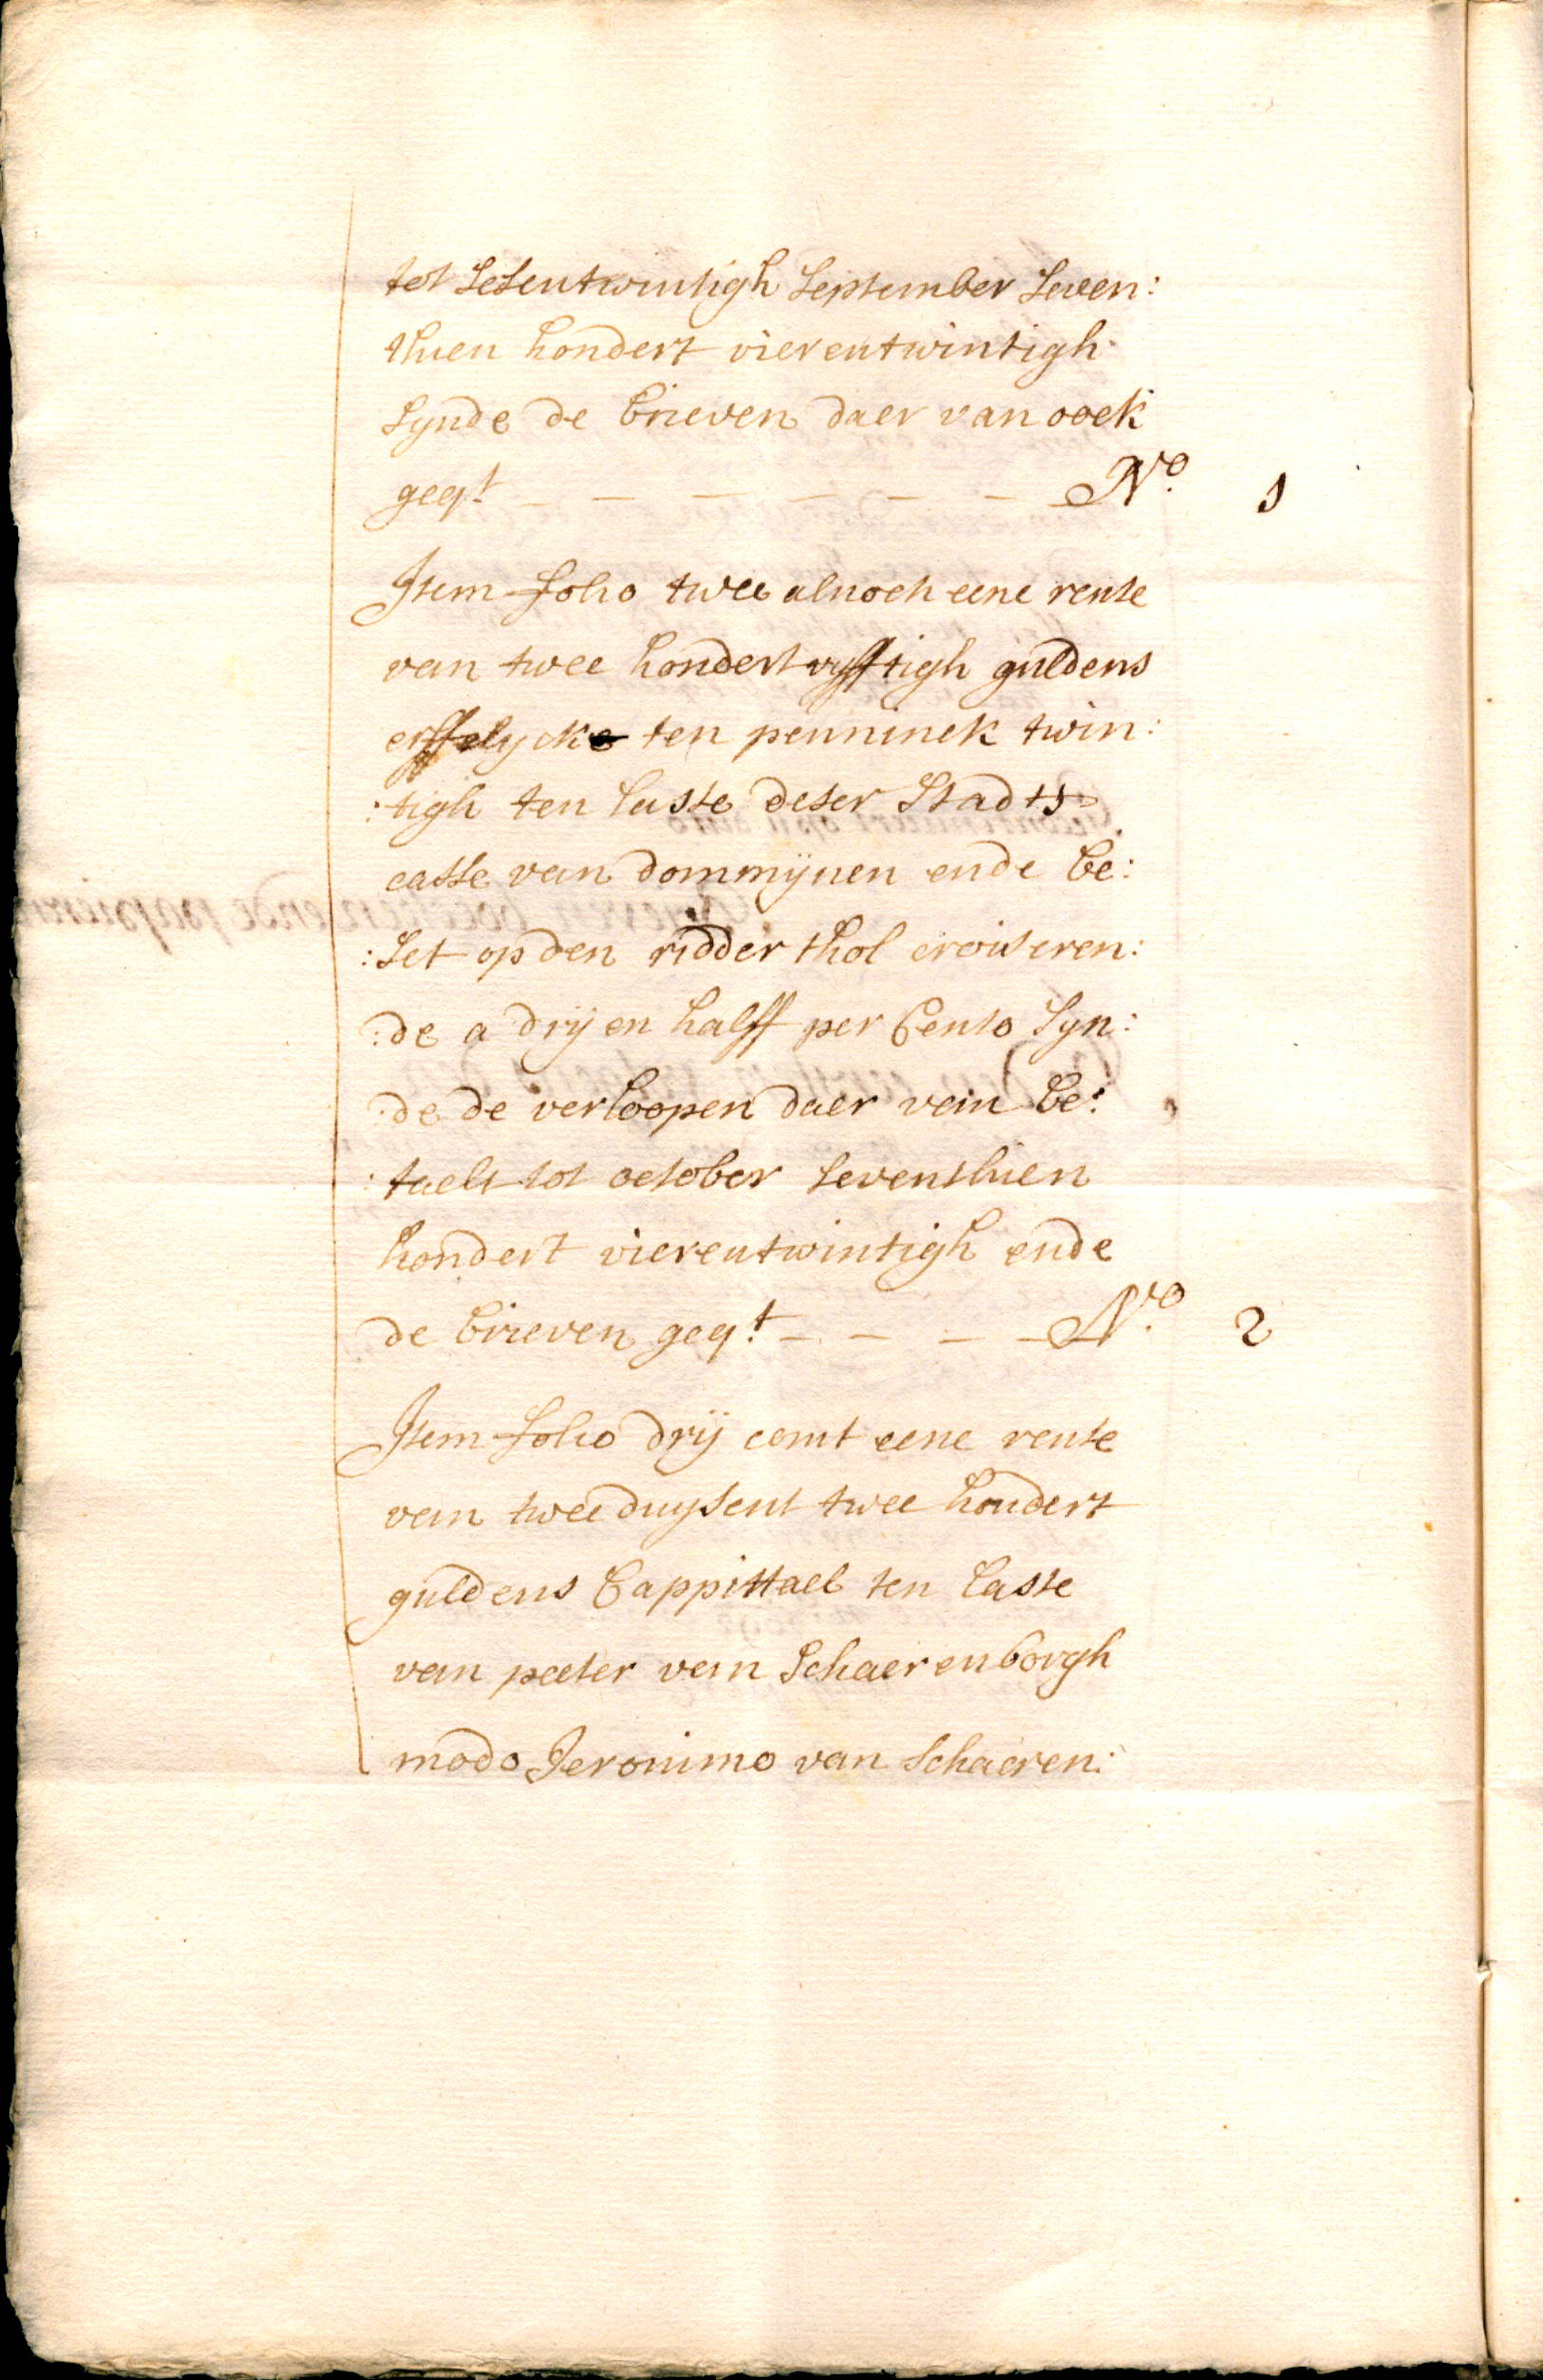 tot sesentwintigh september seven:
thien hondert vierentwintigh
synde de brieven daer van oock
geqt - - - - - - No. 1
Item folio twee alnoch eene rente
van twee hondert vyfftigh guldens
erffelycke ten penninck twin:
:tigh ten laste deser Stadts
casse van dommijnen ende be:
:set op den ridder thol croiseren:
:de a drij en halff per Cento syn:
:de de verloopen daer van be:
:taelt tot october seventhien
hondert vierentwintigh ende
de brieven geqt - - - - No. 2
Item folio drij comt eene rente
van twee duysent twee hondert
guldens Cappittael ten laste
van peeter van Schaerenborgh
modo Jeronimo van Schaeren: